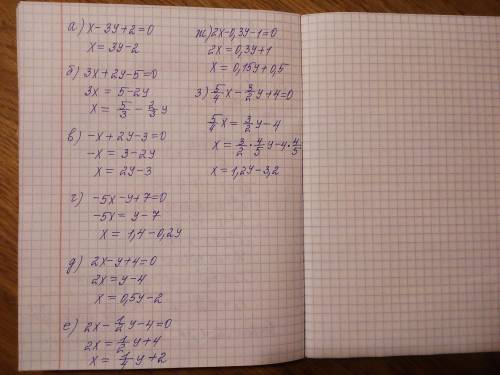 а) x-3y+2=0
x=3y-2
б) 3x+2y-5=0
3x=5-2y
x=5/3-2/3y
в) -x+2y-3=0
-x=3-2y
x=2y-3
г) -5x-y+7=0
-5x=y-7
x=1,4-0,2y
д) 2x-y+4=0
2x=y-4
x=0,5y-2
е) 2x-1/2y-4=0
2x=1/2y+4
x=1/4y+2
ж) 2x-0,3y-1=0
2x=0,3y+1
x=0,15y+0,5
з) 5/4x-3/2y+4=0
5/4x=3/2y-4
x=3/2·4/5y-4·4/5
x=1,2y-3,2